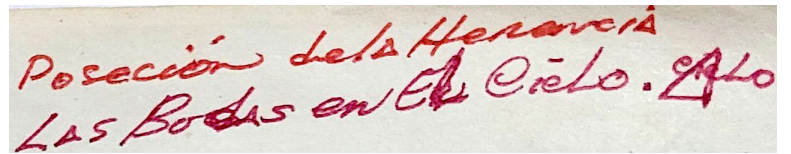 Poseción dela Herencia
Las Bodas en El Cielo.